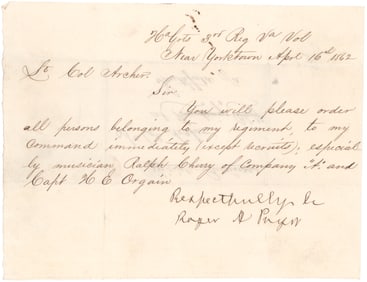 Hd Qrts 3rd Reg Va Vol
Near Yorktown Apl 16th 1862
Lt Col Archer.
Sir
You will please order
all persons belonging to my regiment, to my
Command immediately (except recruits); especial
by musician, Ralph Cherry of Company "A" and
Capt H E Orgain
Respectfully &c
Roger A Pryor